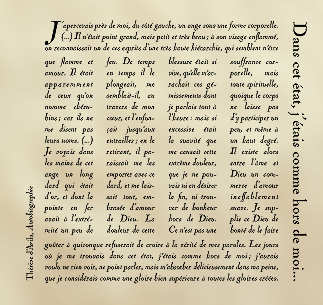 J'apercevais près de moi, du côté gauche, un ange sous une forme corporelle.
(...) Il n'était point grand, mais petit et très beau ; à son visage enflammé,
on reconnaissait un de ces esprits d'une très haute hiérarchie, qui semblent n'être
que flamme et
amour. Il était
apparemment
de ceux qu'on
nomme chéru-
bins ; car ils ne
me disent pas
leurs noms. (...)
Je voyais dans
les mains de cet
ange un long
dard qui était
d'or, et dont la
pointe en fer
avait à l'extré-
mité un peu de
feu. De temps
en temps il le
plongeait, me
semblait-il, au
travers de mon
cœur, et l'enfon-
çait jusqu'aux
entrailles ; en le
retirant, il pa-
raissait me les
emporter avec ce
dard, et me lais-
sait tout, em-
brasée d'amour
de Dieu. La
douleur de cette
blessure était si
vive, qu'elle m'ar-
rachait ces gé-
missements dont
je parlais tout à
l'heure : mais si
excessive était
la suavité que
me causait cette
extrême douleur,
que je ne pou-
vais ni en désirer
la fin, ni trou-
ver de bonheur
hors de Dieu.
Ce n'est pas une
souffrance cor-
porelle, mais
toute spirituelle,
quoique le corps
ne laisse pas
d'y participer un
peu, et même à
un haut degré.
Il existe alors
entre l'âme et
Dieu un com-
merce d'amour
ineffablement
suave. Je sup-
plie ce Dieu de
bonté de le faire
goûter à quiconque refuserait de croire à la vérité de mes paroles. Les jours
où je me trouvais dans cet état, j'étais comme hors de moi ; j'aurais
voulu ne rien voir, ne point parler, mais m'absorber délicieusement dans ma peine,
que je considérais comme une gloire bien supérieure à toutes les gloires créées.
Dans cet état, j'étais comme hors de moi...
Thérèse d'Avila, Autobiographie